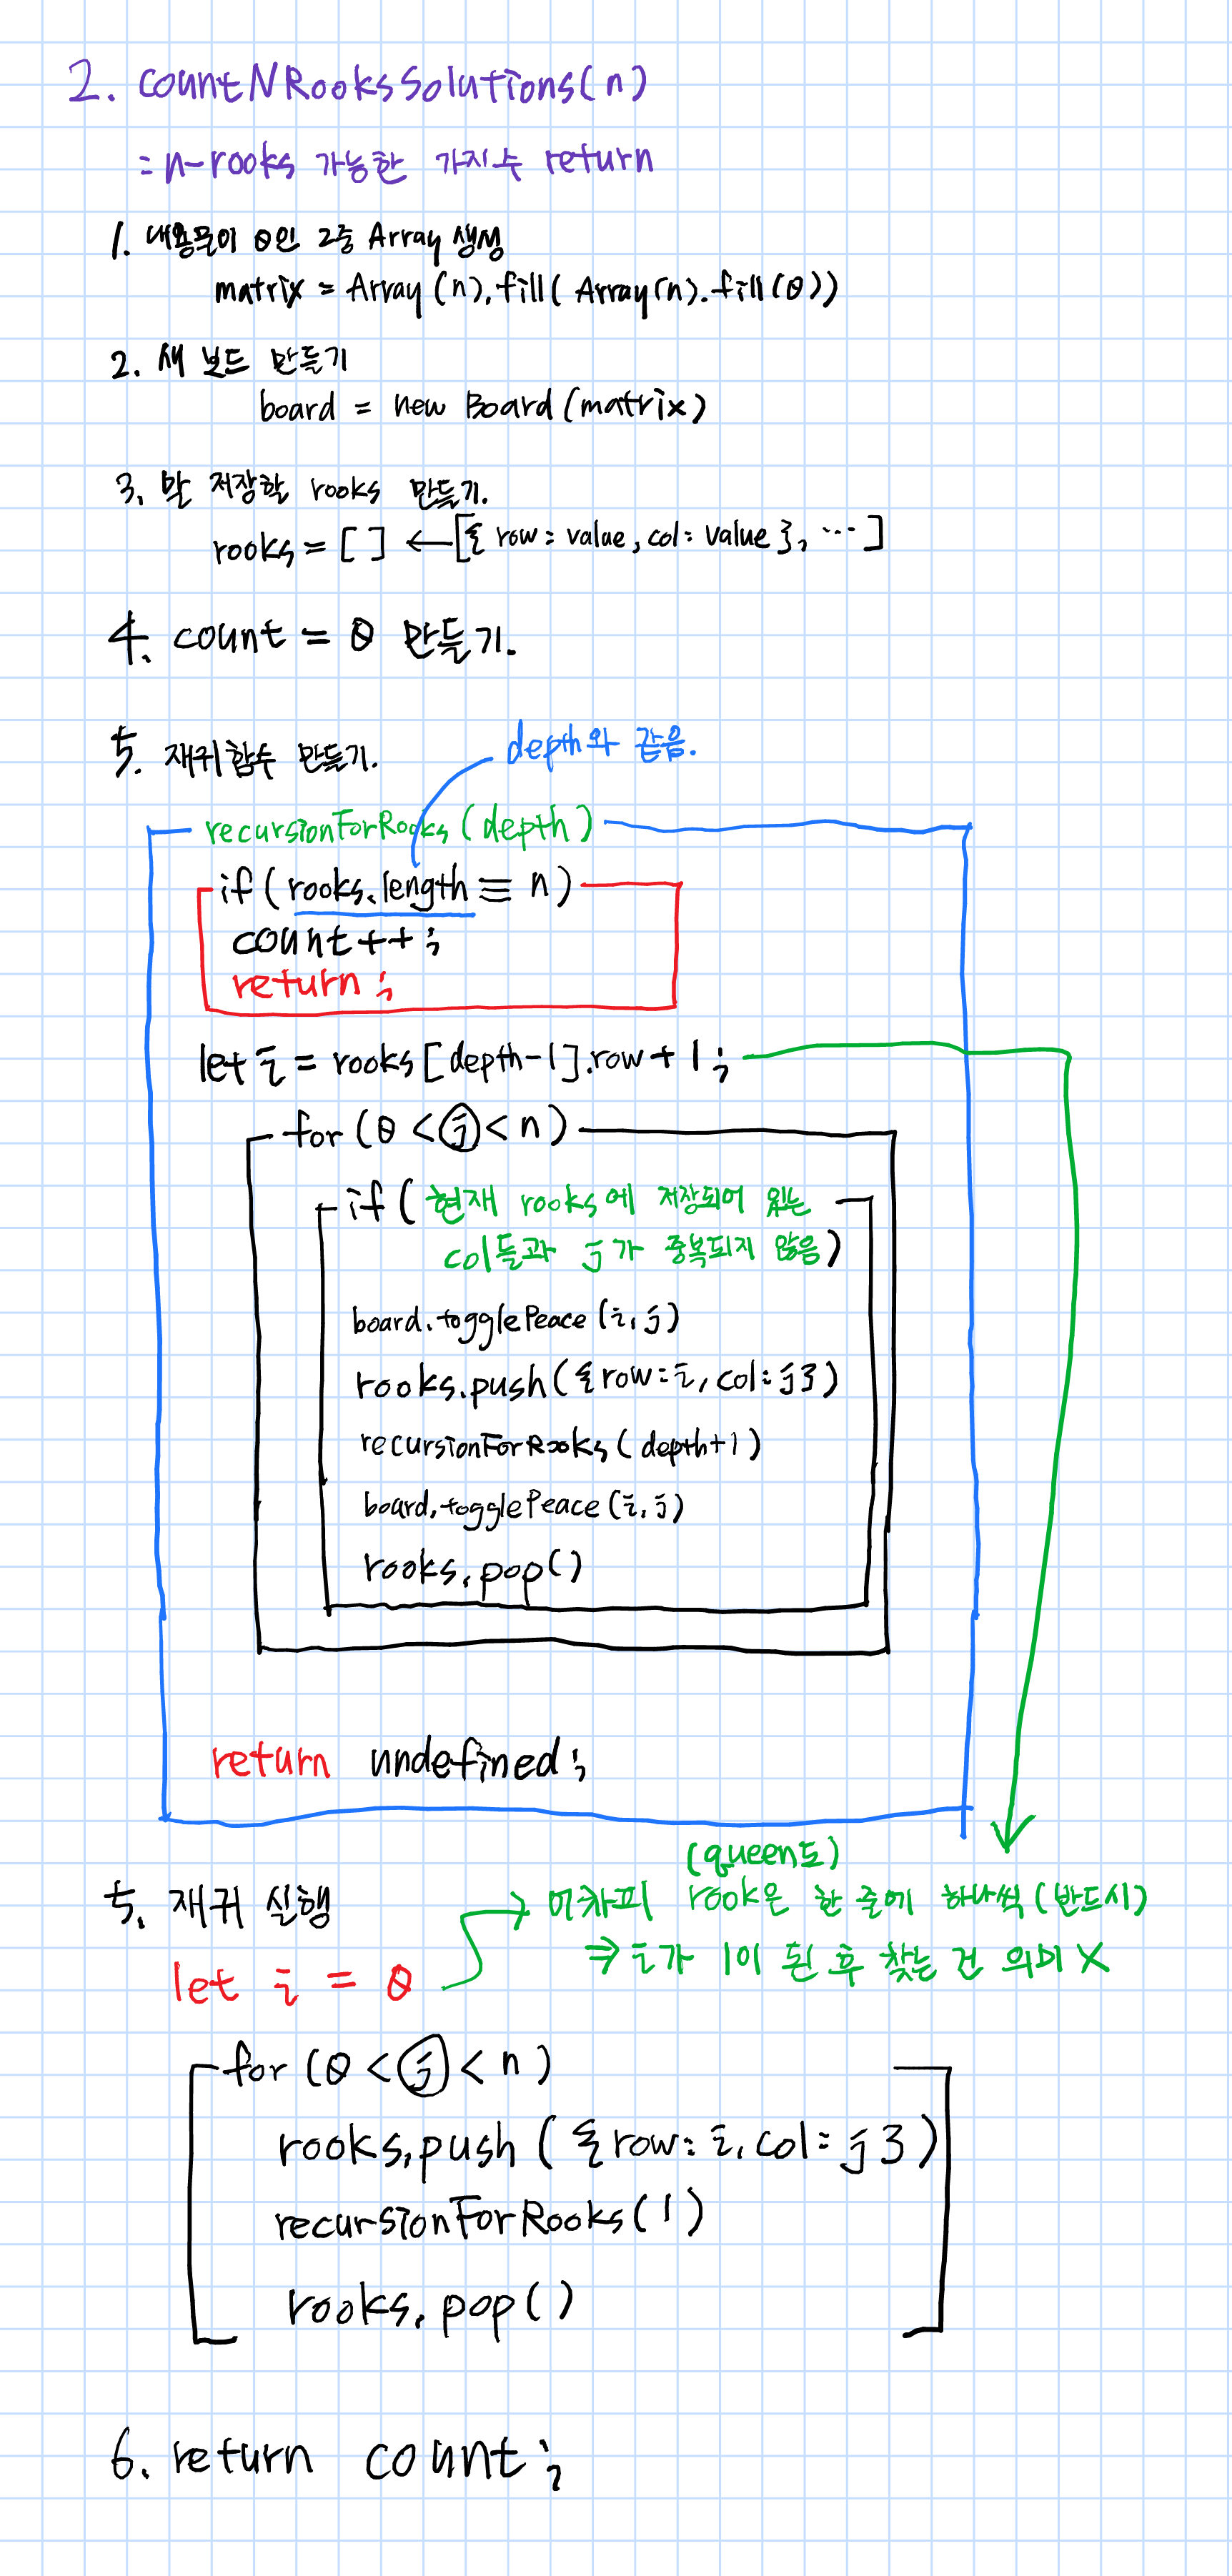 2. countNRooksSolutions(n)
= n-rooks 가능한 가지수 return
1. 내용물이 0인 2중 Array 생성
matrix = Array(n).fill(Array(n).fill(0))
2. 새 보드 만들기
board = new Board(matrix)
3. 말 저장할 rooks 만들기.
rooks = [ ] ← [{ row: value, col: value }, ⋯ ]
4. count = 0 만들기.
5. 재귀함수 만들기.
depth와 같음.
recursionForRooks(depth)
if (rooks.length === n)
count++;
return;
let i = rooks[depth-1].row+1;
for (0 < j < n)
if ( 현재 rooks에 저장되어 있는
col들과 j가 중복되지 않음)
board.togglePeace(i, j)
rooks.push({row: i, col: j})
recursionForRooks(depth+1)
board.togglePeace(i, j)
rooks.pop()
return undefined;
(queen도)
5. 재귀 실행 → 어차피 rook은 한 줄에 하나씩 (반드시)
⇒ i가 1이 된 후 찾는 건 의미 X
let i = 0
for (0 < j < n)
rooks.push({row: i, col: j})
recursionForRooks(1)
rooks.pop()
6. return count;